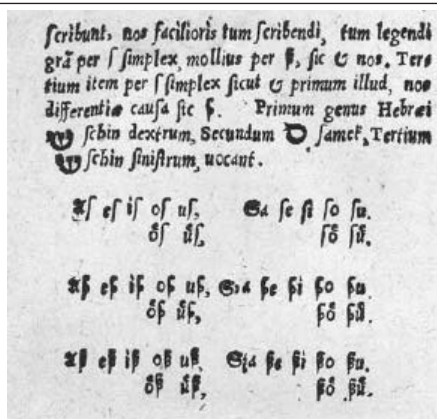 ſcribunt, nos facilioris tum ſcribendi, tum legendi
grã per ſ ſimplex, mollius per ß, ſic & nos. Ter⸗
tium item per ſ ſimplex ſicut & primum illud, nos
differentiæ cauſa ſic ꞩ. Primum genus Hebræi
שׁ ſchin dextrum, Secundum ס ſamek, Tertium
שׂ ſchin ſiniſtrum, uocant.
Aſ eſ iſ oſ uſ, Sa ſe ſi ſo ſu.
oͤſ uͤſ, ſoͤ ſuͤ.
Aß eß iß oß uß, Sza ße ßi ßo ßu.
oͤß uͤß, ßoͤ ßuͤ.